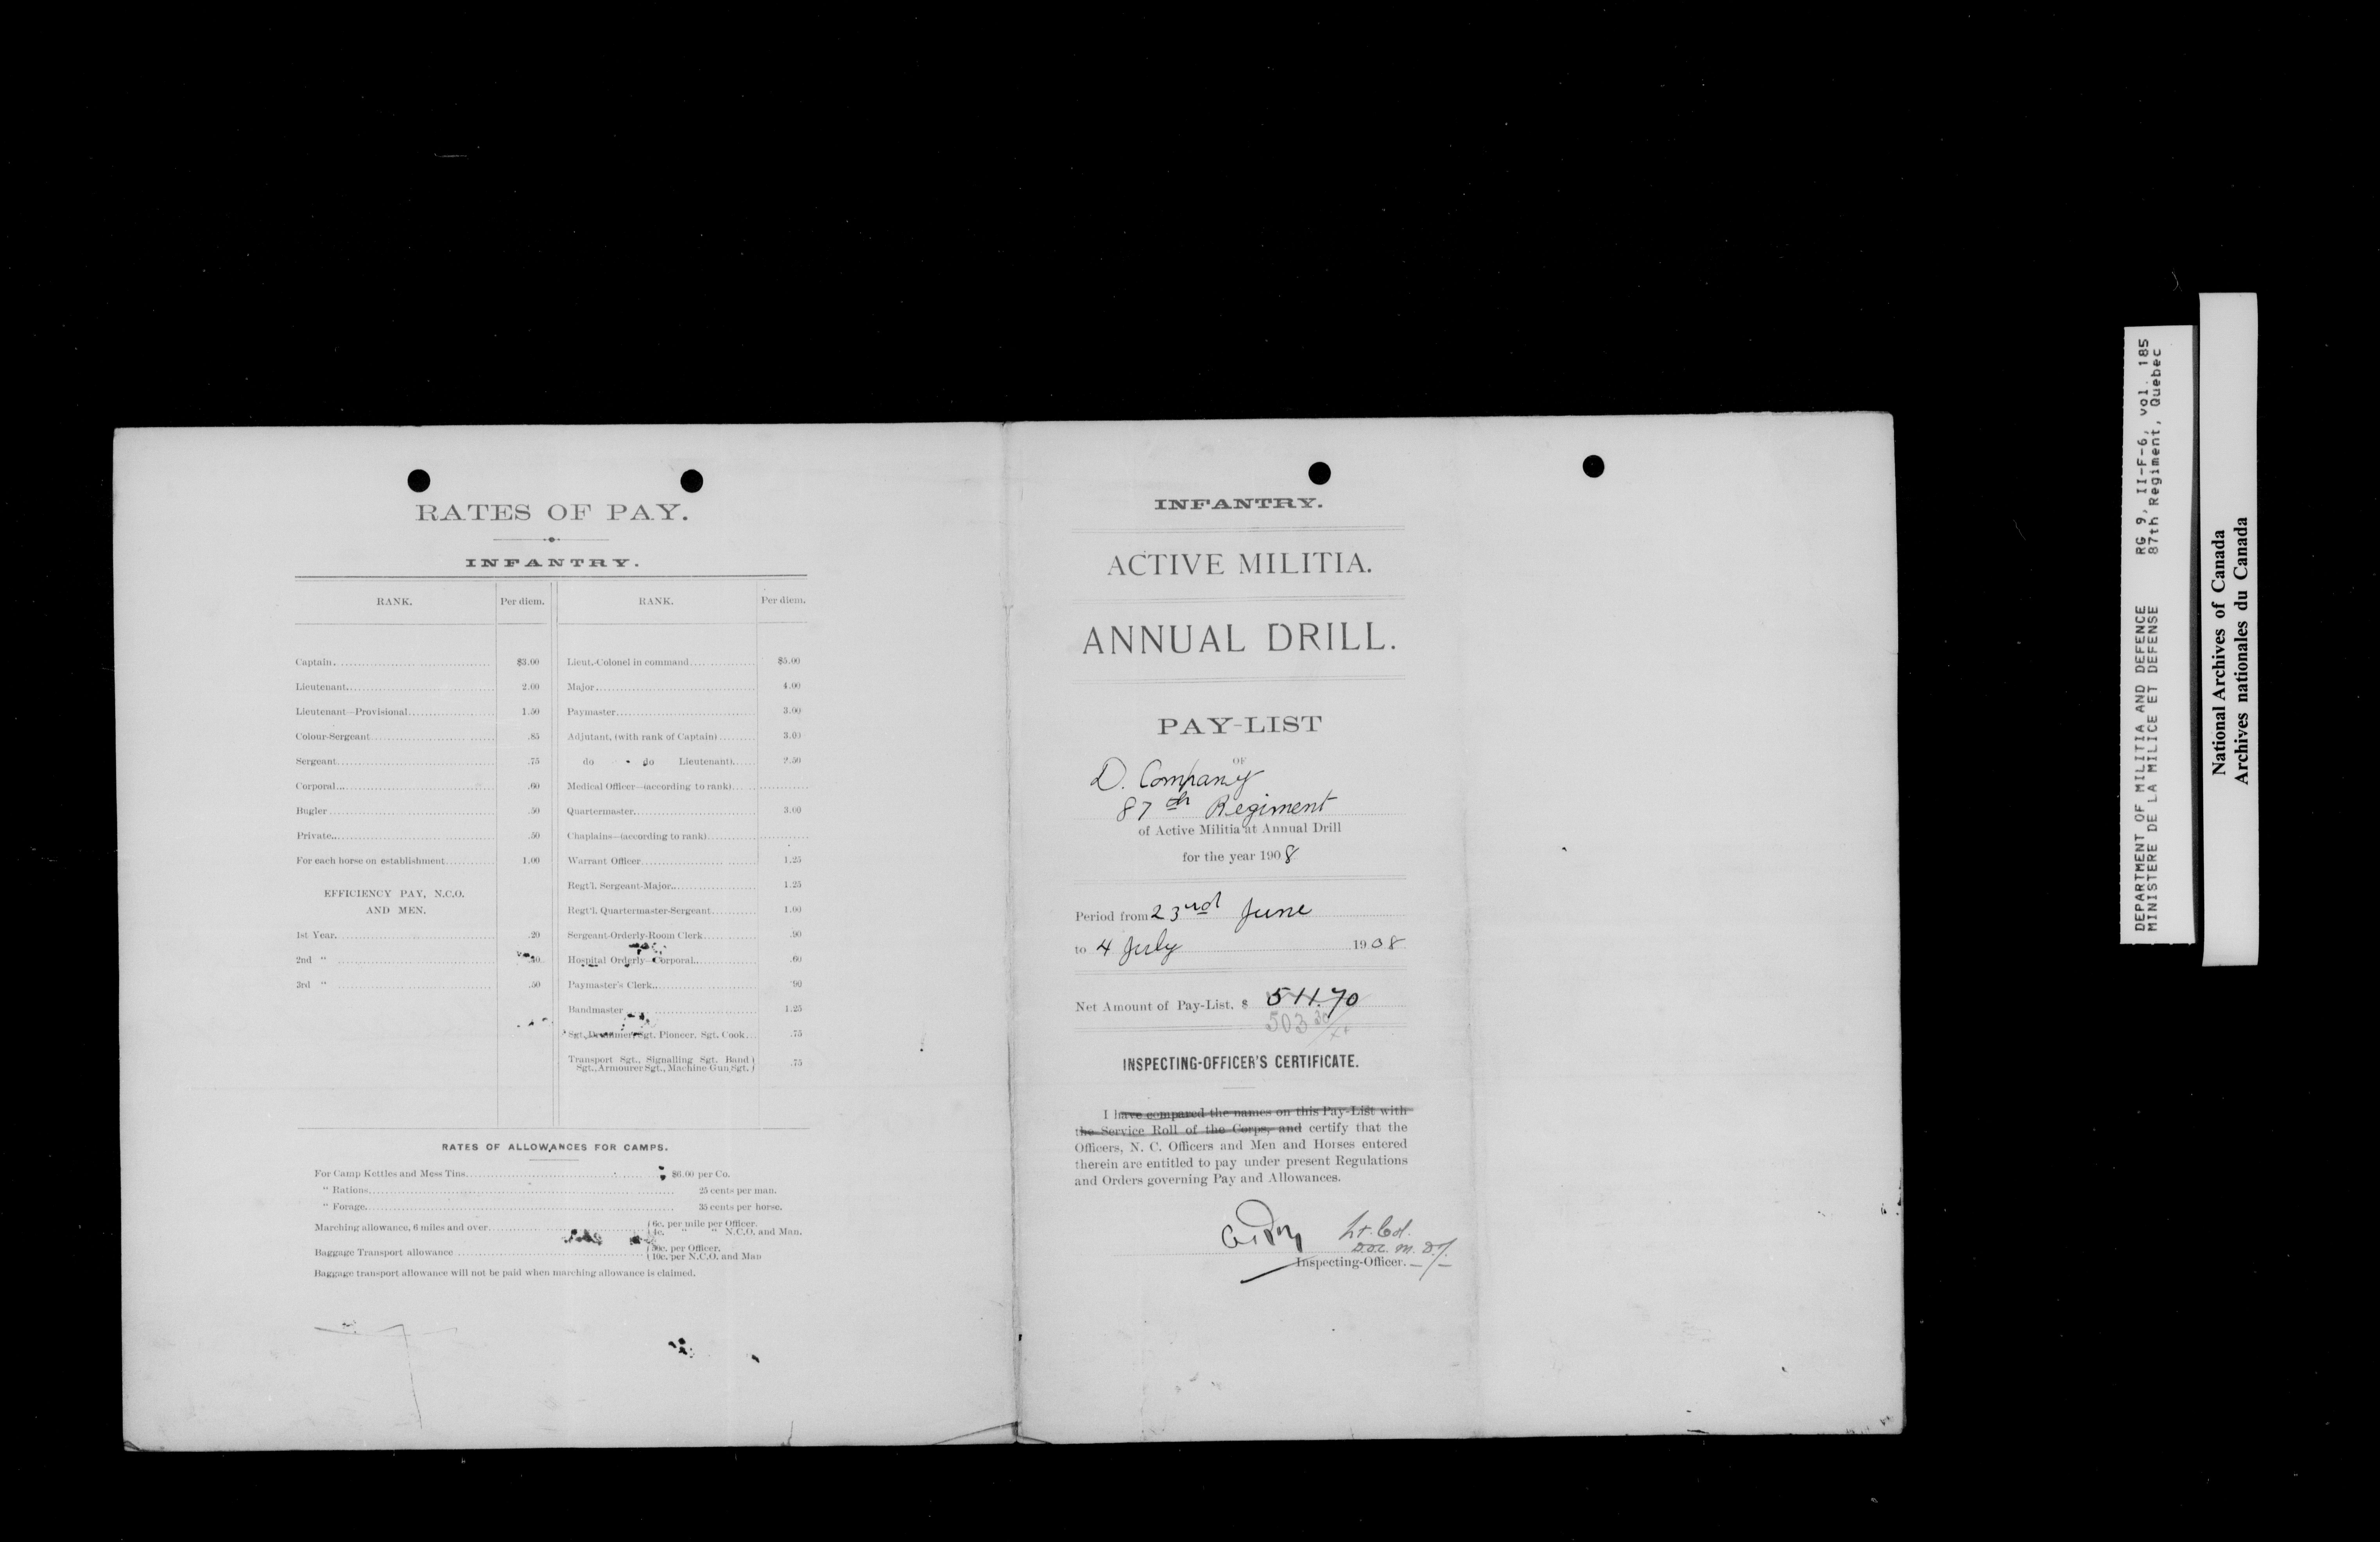 RATES OF PAY.
INFANTRY.
RANK. Per diem. RANK. Per diem.
Captain $3.00 Lieut.-Colonel in command $5.00
Lieutenant 2.00 Major 4.00
Lieutenant—Provisional 1.50 Paymaster 3.00
Colour-Sergeant .85 Adjutant, (with rank of Captain) 3.00
Sergeant .75 do do Lieutenant) 2.50
Corporal .60 Medical Officer—(according to rank)
Bugler .50 Quartermaster 3.00
Private .50 Chaplains—(according to rank)
For each horse on establishment 1.00 Warrant Officer 1.25
EFFICIENCY PAY, N.C.O. Regt'l. Sergeant-Major 1.25
AND MEN. Regt'l. Quartermaster-Sergeant 1.00
1st Year .20 Sergeant-Orderly-Room Clerk .90
2nd " Hospital Orderly—Corporal .60
3rd " .50 Paymaster's Clerk .90
Bandmaster 1.25
Sgt. Drummer, Sgt. Pioneer, Sgt. Cook .75
Transport Sgt., Signalling Sgt. Band
Sgt., Armourer Sgt., Machine Gun Sgt. .75
RATES OF ALLOWANCES FOR CAMPS.
For Camp Kettles and Mess Tins $6.00 per Co.
" Rations 25 cents per man.
" Forage 35 cents per horse.
Marching allowance, 6 miles and over 6c. per mile per Officer.
4c. " " N.C.O. and Man.
Baggage Transport allowance 30c. per Officer.
10c. per N.C.O. and Man
Baggage transport allowance will not be paid when marching allowance is claimed.
INFANTRY.
ACTIVE MILITIA.
ANNUAL DRILL.
PAY-LIST
OF
D. Company
87th Regiment
of Active Militia at Annual Drill
for the year 1908
Period from 23rd June
to 4 July 1908
Net Amount of Pay-List, $ 511.70
503 30
INSPECTING-OFFICER'S CERTIFICATE.
I have compared the names on this Pay-List with
the Service Roll of the Corps, and certify that the
Officers, N. C. Officers and Men and Horses entered
therein are entitled to pay under present Regulations
and Orders governing Pay and Allowances.
Lt. Col.
D.O.C. M. D. 7.
Inspecting-Officer.
DEPARTMENT OF MILITIA AND DEFENCE RG 9, II-F-6, vol. 185
MINISTERE DE LA MILICE ET DEFENSE 87th Regiment, Quebec
National Archives of Canada
Archives nationales du Canada